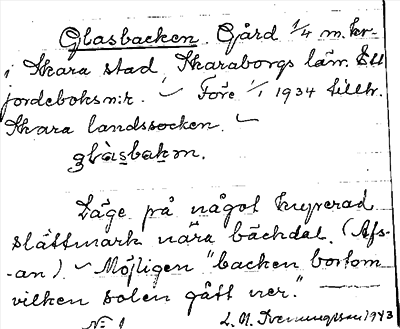 Glasbacken. Gård 1/4 m. kr-
i Skara stad, Skaraborgs län. Ett
jordeboksn:r. ✓ Före 1/1 1934 tillhr.
Skara landssocken. ✓
glàsbakən.
Läge på något kuperad
slättmark nära bäckdal. (Afs-
-an) ✓ Möjligen "backen bortom
vilken solen gått ner."
N:o 1 1943